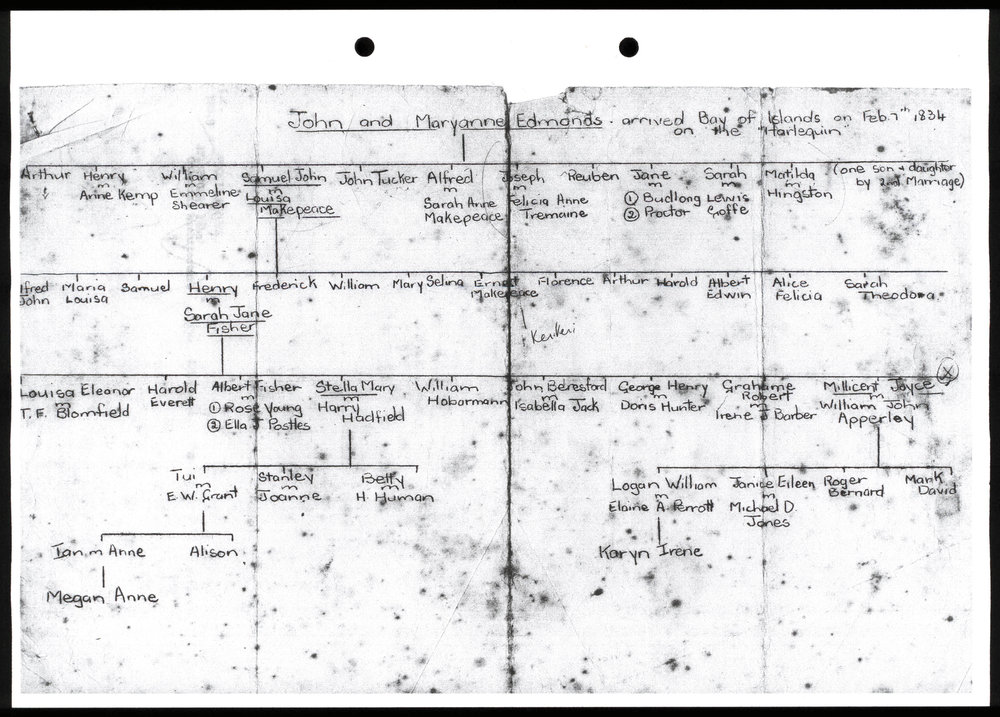 John and Maryanne Edmonds - arrived Bay of Islands on Feb. 7th 1834
on the "Harlequin"
Arthur Henry William Samuel John John Tucker Alfred Joseph Reuben Jane Sarah Matilda (one son & daughter
m m m m m m m m by 2nd Marriage)
Anne Kemp Emmeline Louisa Sarah Anne Felicia Anne ① Budlong Lewis Hingston
Shearer Makepeace Makepeace Tremaine ② Proctor Goffe
lfred Maria Samuel Henry Frederick William Mary Selina Ernest Florence Arthur Harold Albert Alice Sarah
John Louisa m Makepeace Edwin Felicia Theodora
Sarah Jane
Fisher
Kerikeri
Louisa Eleanor Harold Albert Fisher Stella Mary William John Beresford George Henry Grahame Millicent Joyce X
m Everett m m Hobormann m m Robert m
T. F. Blomfield ① Rose Young Harry Isabella Jack Doris Hunter m William John
② Ella J Postles Hadfield Irene J Barber Apperley
Tui Stanley Betty Logan William Janice Eileen Roger Mark
m m m m m Bernard David
E. W. Grant Joanne H. Human Elaine A. Perrott Michael D.
Jones
Ian m Anne Alison Karyn Irene
Megan Anne